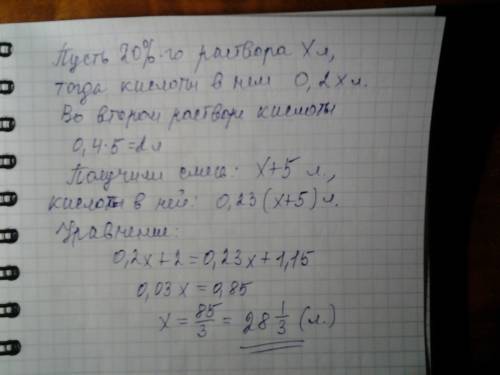 Пусть 20%-го раствора Х л,
тогда кислоты в нем 0,2х л.
Во втором растворе кислоты
0,4·5=2л
Получили смеси: Х+5 л.,
кислоты в ней: 0,23(х+5) л.
Уравнение:
0,2х+2=0,23х+1,15
0,03х=0,85
х=85/3=28 1/3 (л.)